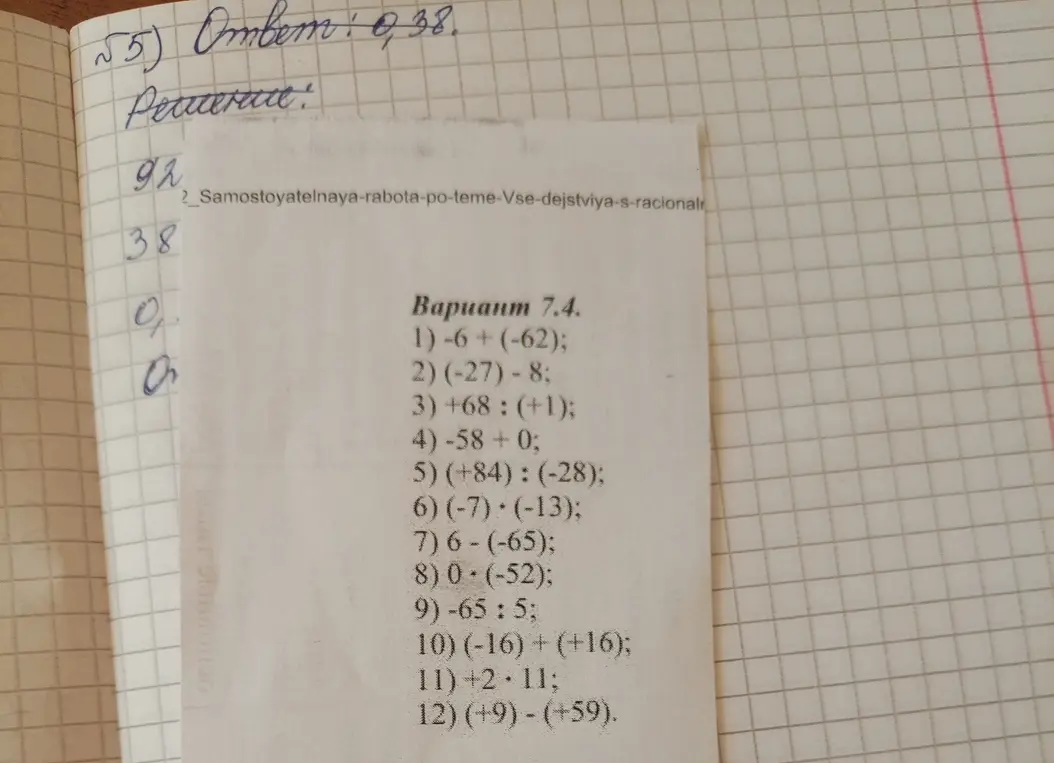 №5) Ответ: 0,38.
Решение:
92
38
0,
От
2_Samostoyatelnaya-rabota-po-teme-Vse-dejstviya-s-racionalr
Вариант 7.4.
1) -6 + (-62);
2) (-27) - 8;
3) +68 : (+1);
4) -58 + 0;
5) (+84) : (-28);
6) (-7) · (-13);
7) 6 - (-65);
8) 0 · (-52);
9) -65 : 5;
10) (-16) + (+16);
11) +2 · 11;
12) (+9) - (+59).